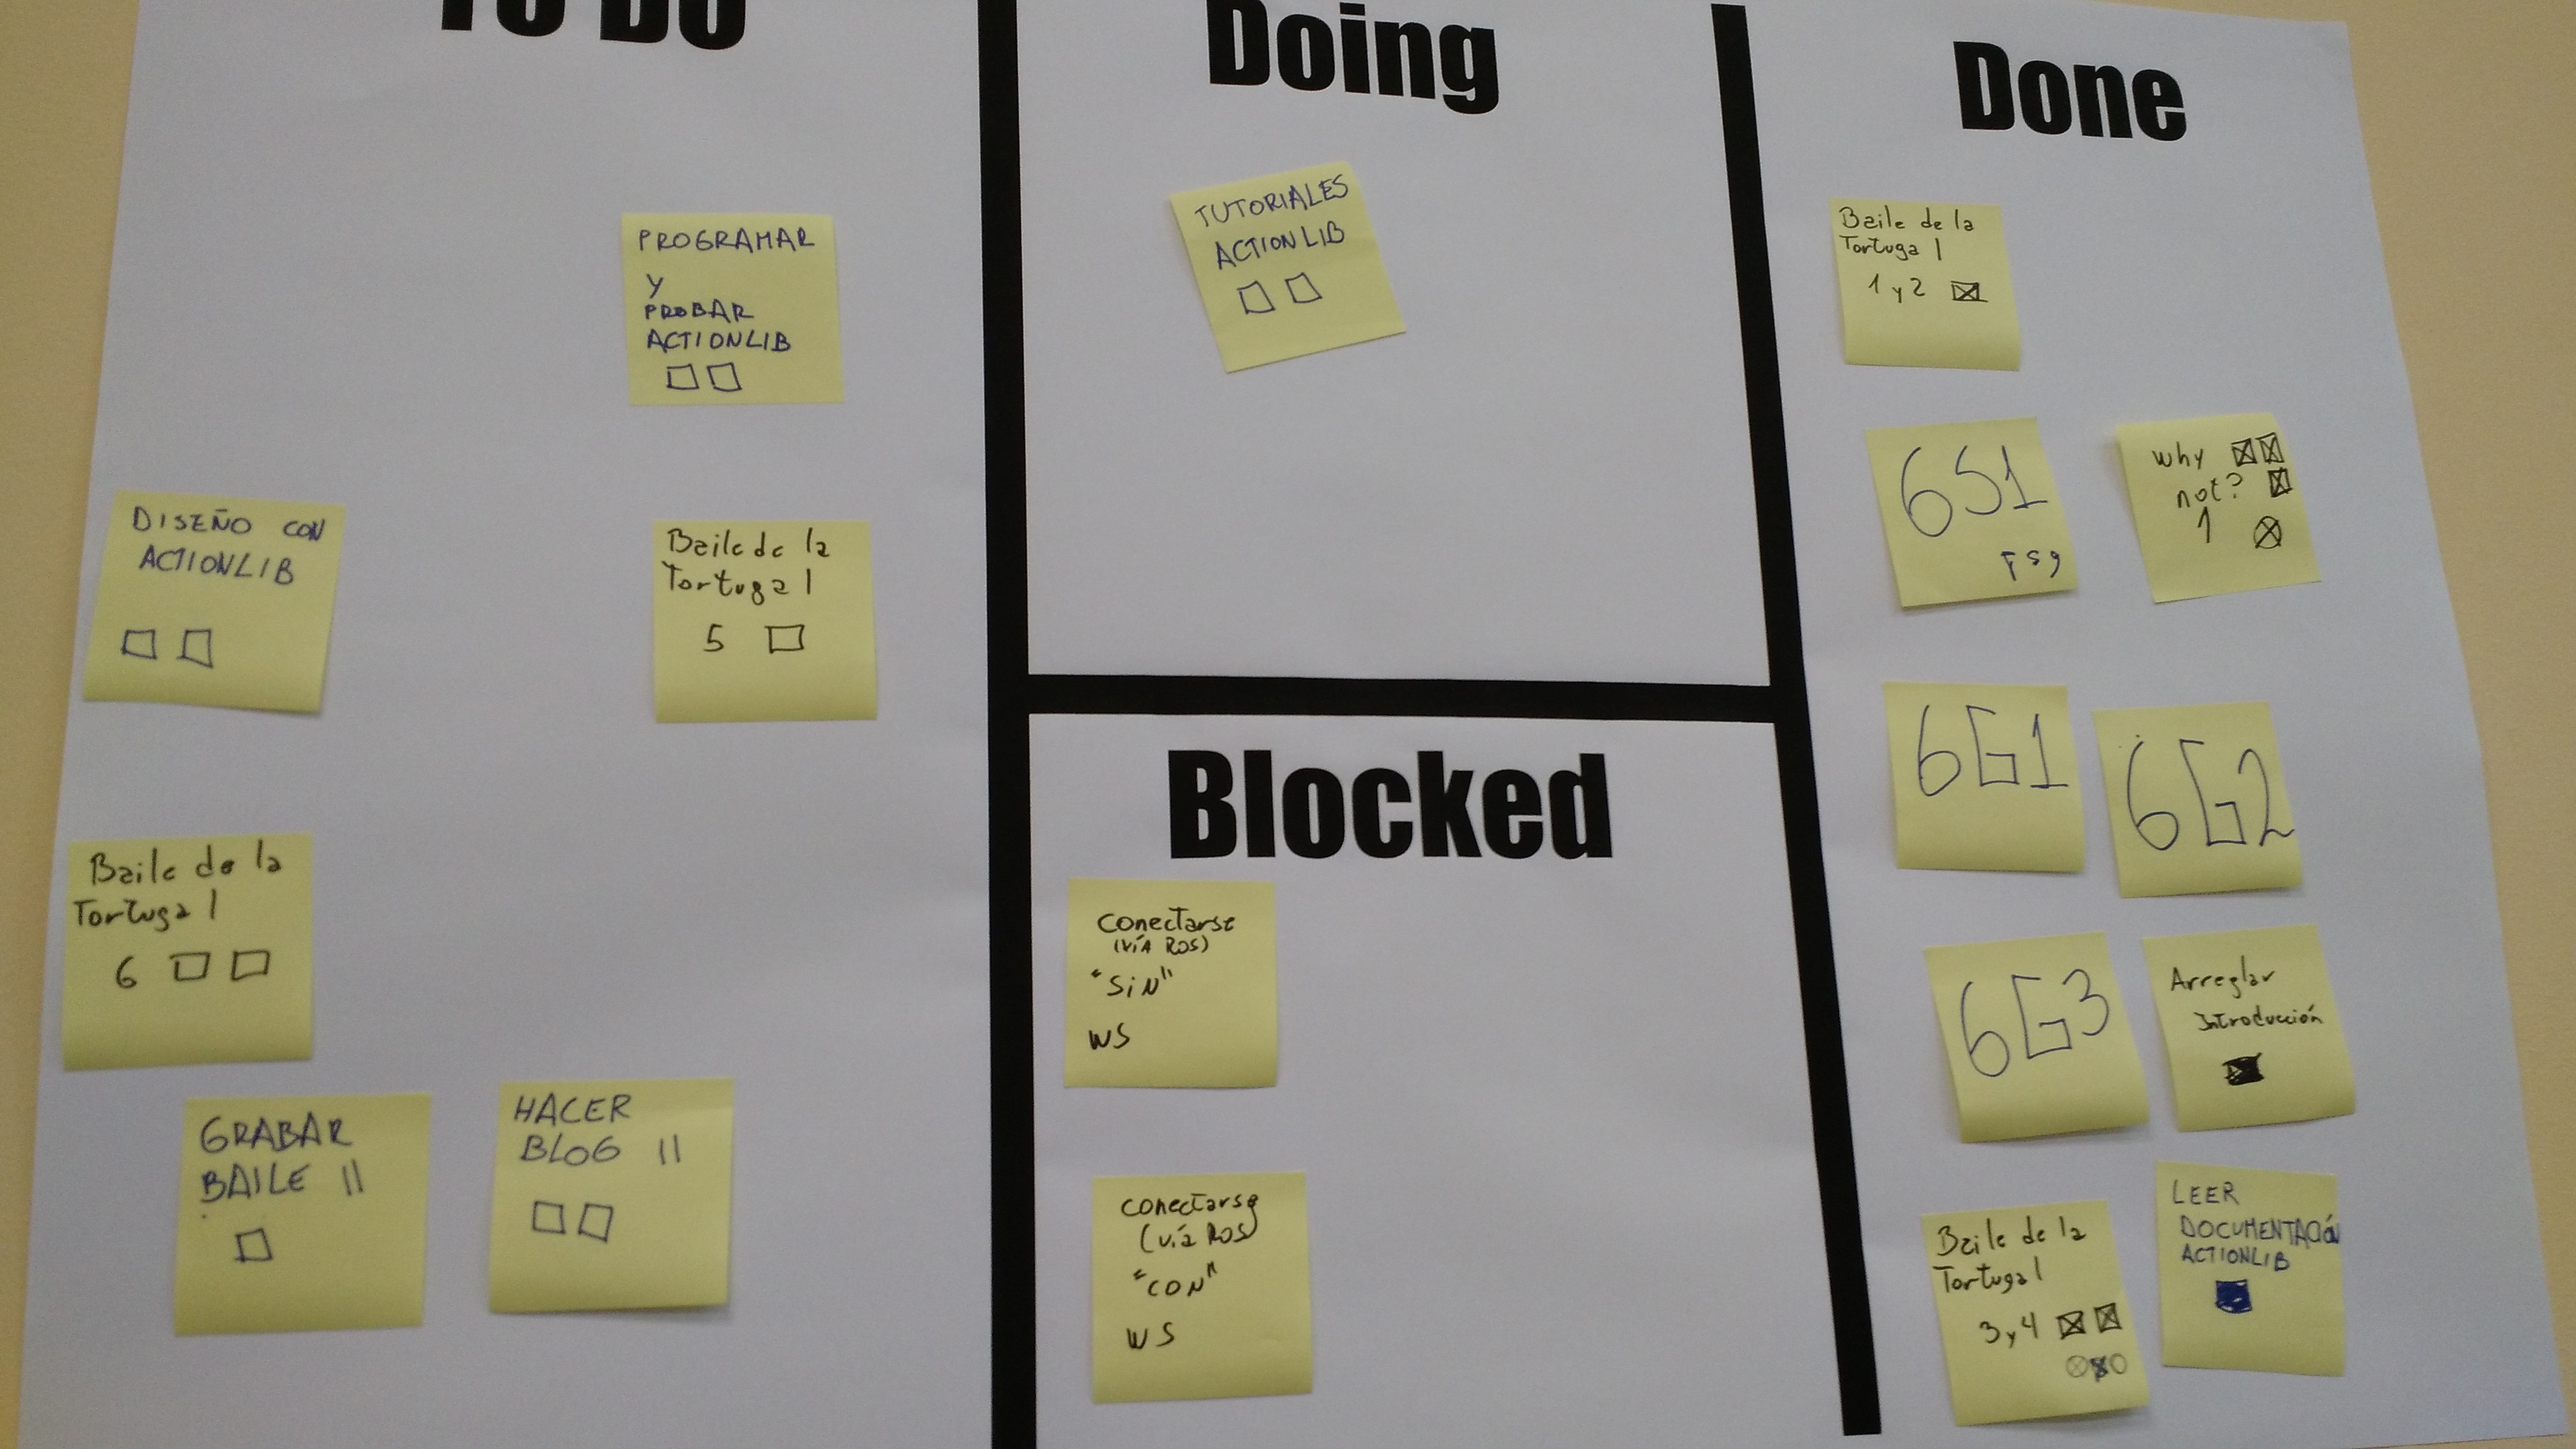 To Do
PROGRAMAR
Y
PROBAR
ACTIONLIB
DISEÑO CON
ACTIONLIB
Baile de la
Tortuga I
5
Baile de la
Tortuga I
6
GRABAR
BAILE II
HACER
BLOG II
Doing
TUTORIALES
ACTIONLIB
Blocked
Conectarse
(VÍA ROS)
"SIN"
WS
conectarse
(vía ROS)
"CON"
WS
Done
Baile de la
Tortuga I
1 y 2
6S1
why
not?
1
6G1
6G2
6G3
Arreglar
Introducción
Baile de la
Tortuga I
3 y 4
LEER
DOCUMENTACIÓN
ACTIONLIB